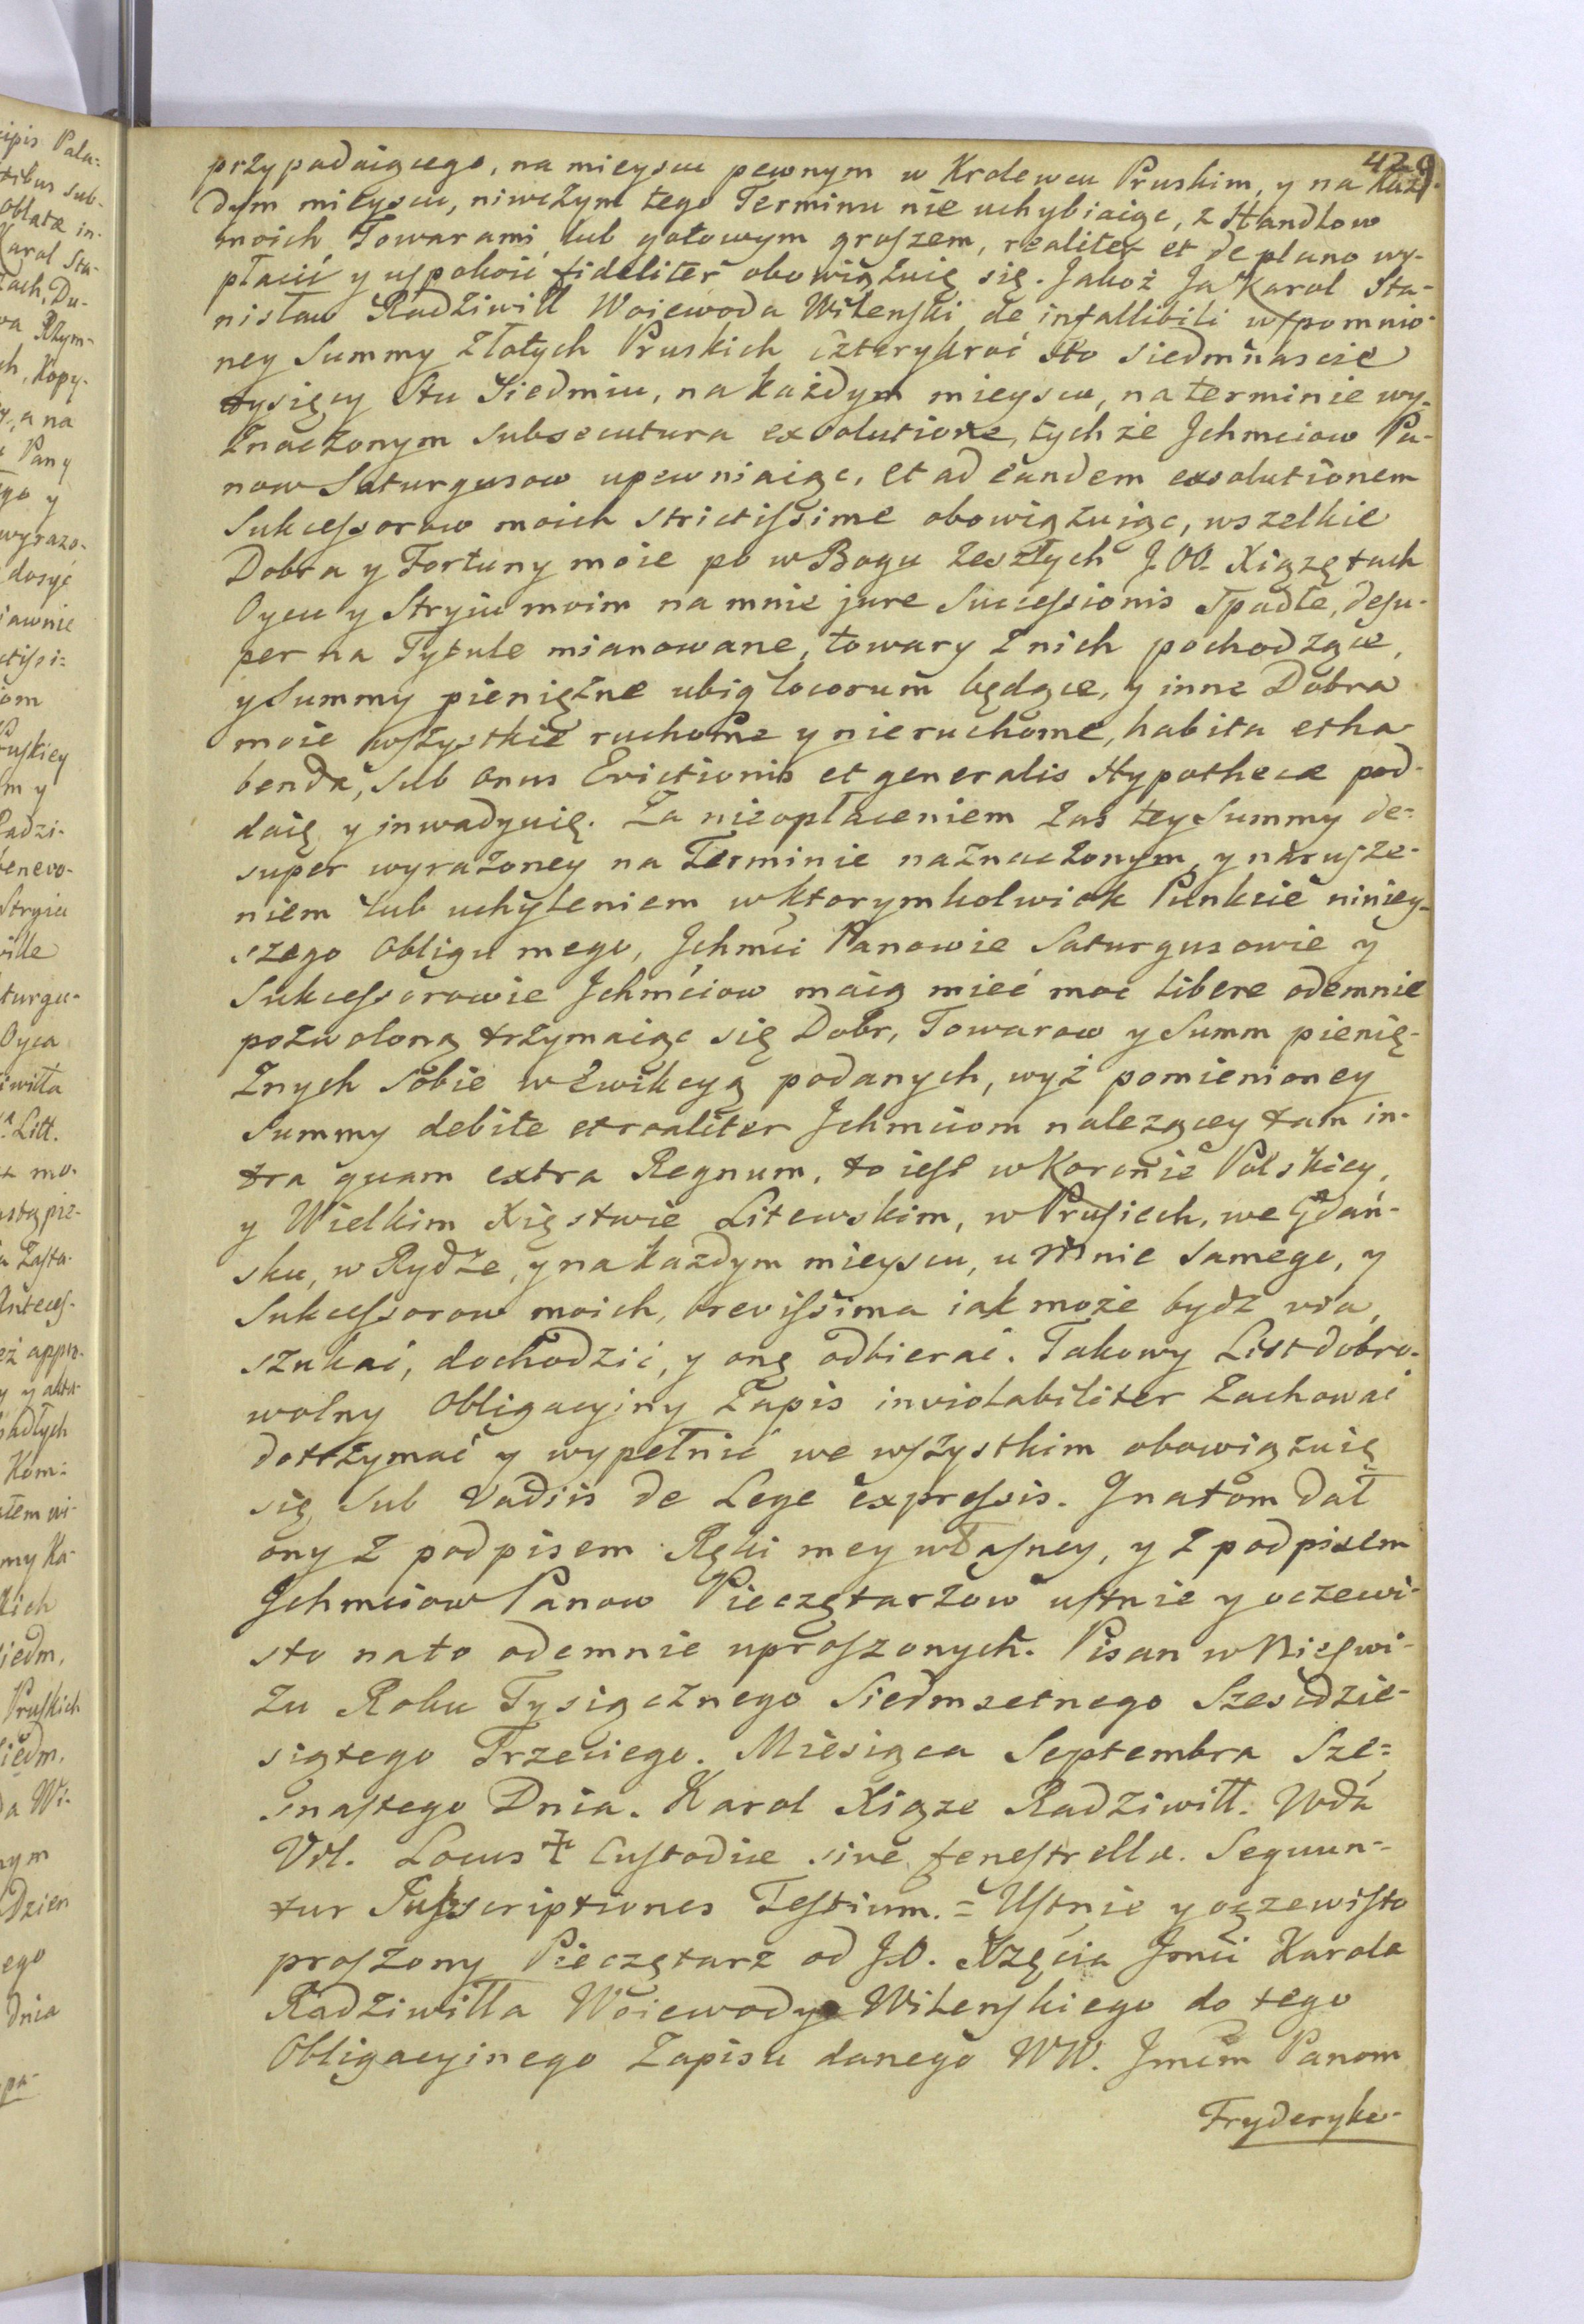 429
przypadaiącego, na mieysu pewnym w Krolewcu Pruskim, y na każ-
dym mieyscu, niwczym tego Terminu nie uchybiaiąc, z Handlow
moich Towarami lub gotowym groszem, realiter et de plano wy-
płacić y uspokoić fideliter obowiązuię się. Jakoż Ja Karol Sta-
nisław Radziwiłł Woiewoda Wilenski, de infallibili wspomnio-
ney Summy Złotych Pruskich czterykroć sto siedmnascie
tysięcy Stu Siedmiu, na każdym mieyscu, na terminie wy-
znaczonym subsecutura exsolutione, tychże Jchmciow Pa-
now Saturgusow upewniaiąc, et ad eandem exsolutionem
Sukcessorow moich strictissime obowiązuiąc, wszelkie
Dobra y Fortuny moie po w Bogu zeszłych J. OO. Xiążętach
Oycu y Stryiu moim na mnie jure Successionis spadłe, desu-
per na Tytule mianowane, towary z nich pochodzące,
y Summy pieniężne ubiq locorum będące, y inne Dobra
moie wszystkie ruchome y nieruchome, habita et ha-
benda, sub onus Evictionis et generalis Hypothecæ pod-
daię y inwadyuię. Za nieopłaceniem zas tey Summy de=
super wyrażoney na Terminie naznaczonym, y narusze-
niem lub uchyleniem w ktorymkolwiek Punkcie niniey-
szego Obligu mego, Jchmći Panowie Saturgusowie y
Sukcessorowie Jchmćiow maią mieć moc libere odemnie
pozwoloną trzymaiąc się Dobr, Towarow y Summ pienię-
żnych sobie w Ewikcyą podanych, wyż pomienioney
Summy debite et realiter Jchmciom należącey tam in-
tra quam extra Regnum, to iest w Koronie Polskiey,
y Wielkim Xięstwie Litewskim, w Prusiech, we Gdań-
sku, w Rydze, y na każdym mieyscu, u Mnie samego, y
Sukcessorow moich, brevissima iak może bydz via,
szukać, dochodzić, y onę odbierać. Takowy List dobro-
wolny Obligacyiny Zapis inviolabiliter zachować
dotrzymać y wypełnić we wszystkim obowiązuię
się sub Vadiis de Lege expressis. Y na tom dał
ony z podpisem Ręki mey własney, y z podpisem
Jchmciow Panow Pieczętarzow ustnie y oczewi-
sto na to odemnie uproszonych. Pisan w Nieswi-
żu Roku Tysiącznego Siedmsetnego Szescdzie-
siątego Trzeciego. Miesiąca Septembra Sze=
snastego Dnia. Karol Xiąże Radziwiłł. Wdá
Vil. Locus ☩ Custodiæ sive fenestrellæ. Sequun-
tur Subscriptiones Testium. = Ustnie y oczewisto
proszony Pieczętarz od J.O. Xzęcia Jmći Karola
Radziwiłła Woiewody Wilenskiego do tego
Obligacyinego Zapisu danego WW. Jmćm Panom
Fryderyko-